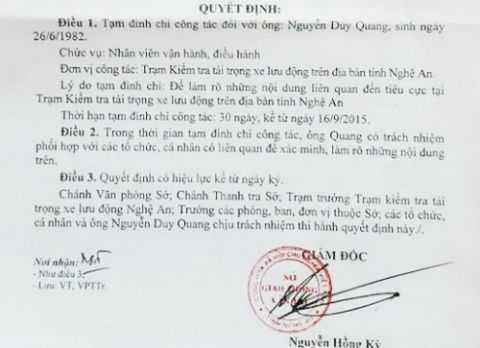 QUYẾT ĐỊNH:
Điều 1. Tạm đình chỉ công tác đối với ông: Nguyễn Duy Quang, sinh ngày
26/6/1982.
Chức vụ: Nhân viên vận hành, điều hành
Đơn vị công tác: Trạm Kiểm tra tải trọng xe lưu động trên địa bàn tỉnh Nghệ An.
Lý do tạm đình chỉ: Để làm rõ những nội dung liên quan đến tiêu cực tại
Trạm Kiểm tra tải trọng xe lưu động trên địa bàn tỉnh Nghệ An
Thời hạn tạm đình chỉ công tác: 30 ngày, kể từ ngày 16/9/2015.
Điều 2. Trong thời gian tạm đình chỉ công tác, ông Quang có trách nhiệm
phối hợp với các tổ chức, cá nhân có liên quan để xác minh, làm rõ những nội dung
trên.
Điều 3. Quyết định có hiệu lực kể từ ngày ký.
Chánh Văn phòng Sở; Chánh Thanh tra Sở; Trạm trưởng Trạm kiểm tra tải
trọng xe lưu động Nghệ An; Trưởng các phòng, ban, đơn vị thuộc Sở; các tổ chức,
cá nhân và ông Nguyễn Duy Quang chịu trách nhiệm thi hành quyết định này./.
Nơi nhận:
- Như điều 3;
- Lưu: VT, VPTTr.
GIÁM ĐỐC
SỞ
GIAO THÔNG
VẬN TẢI
Nguyễn Hồng Kỳ